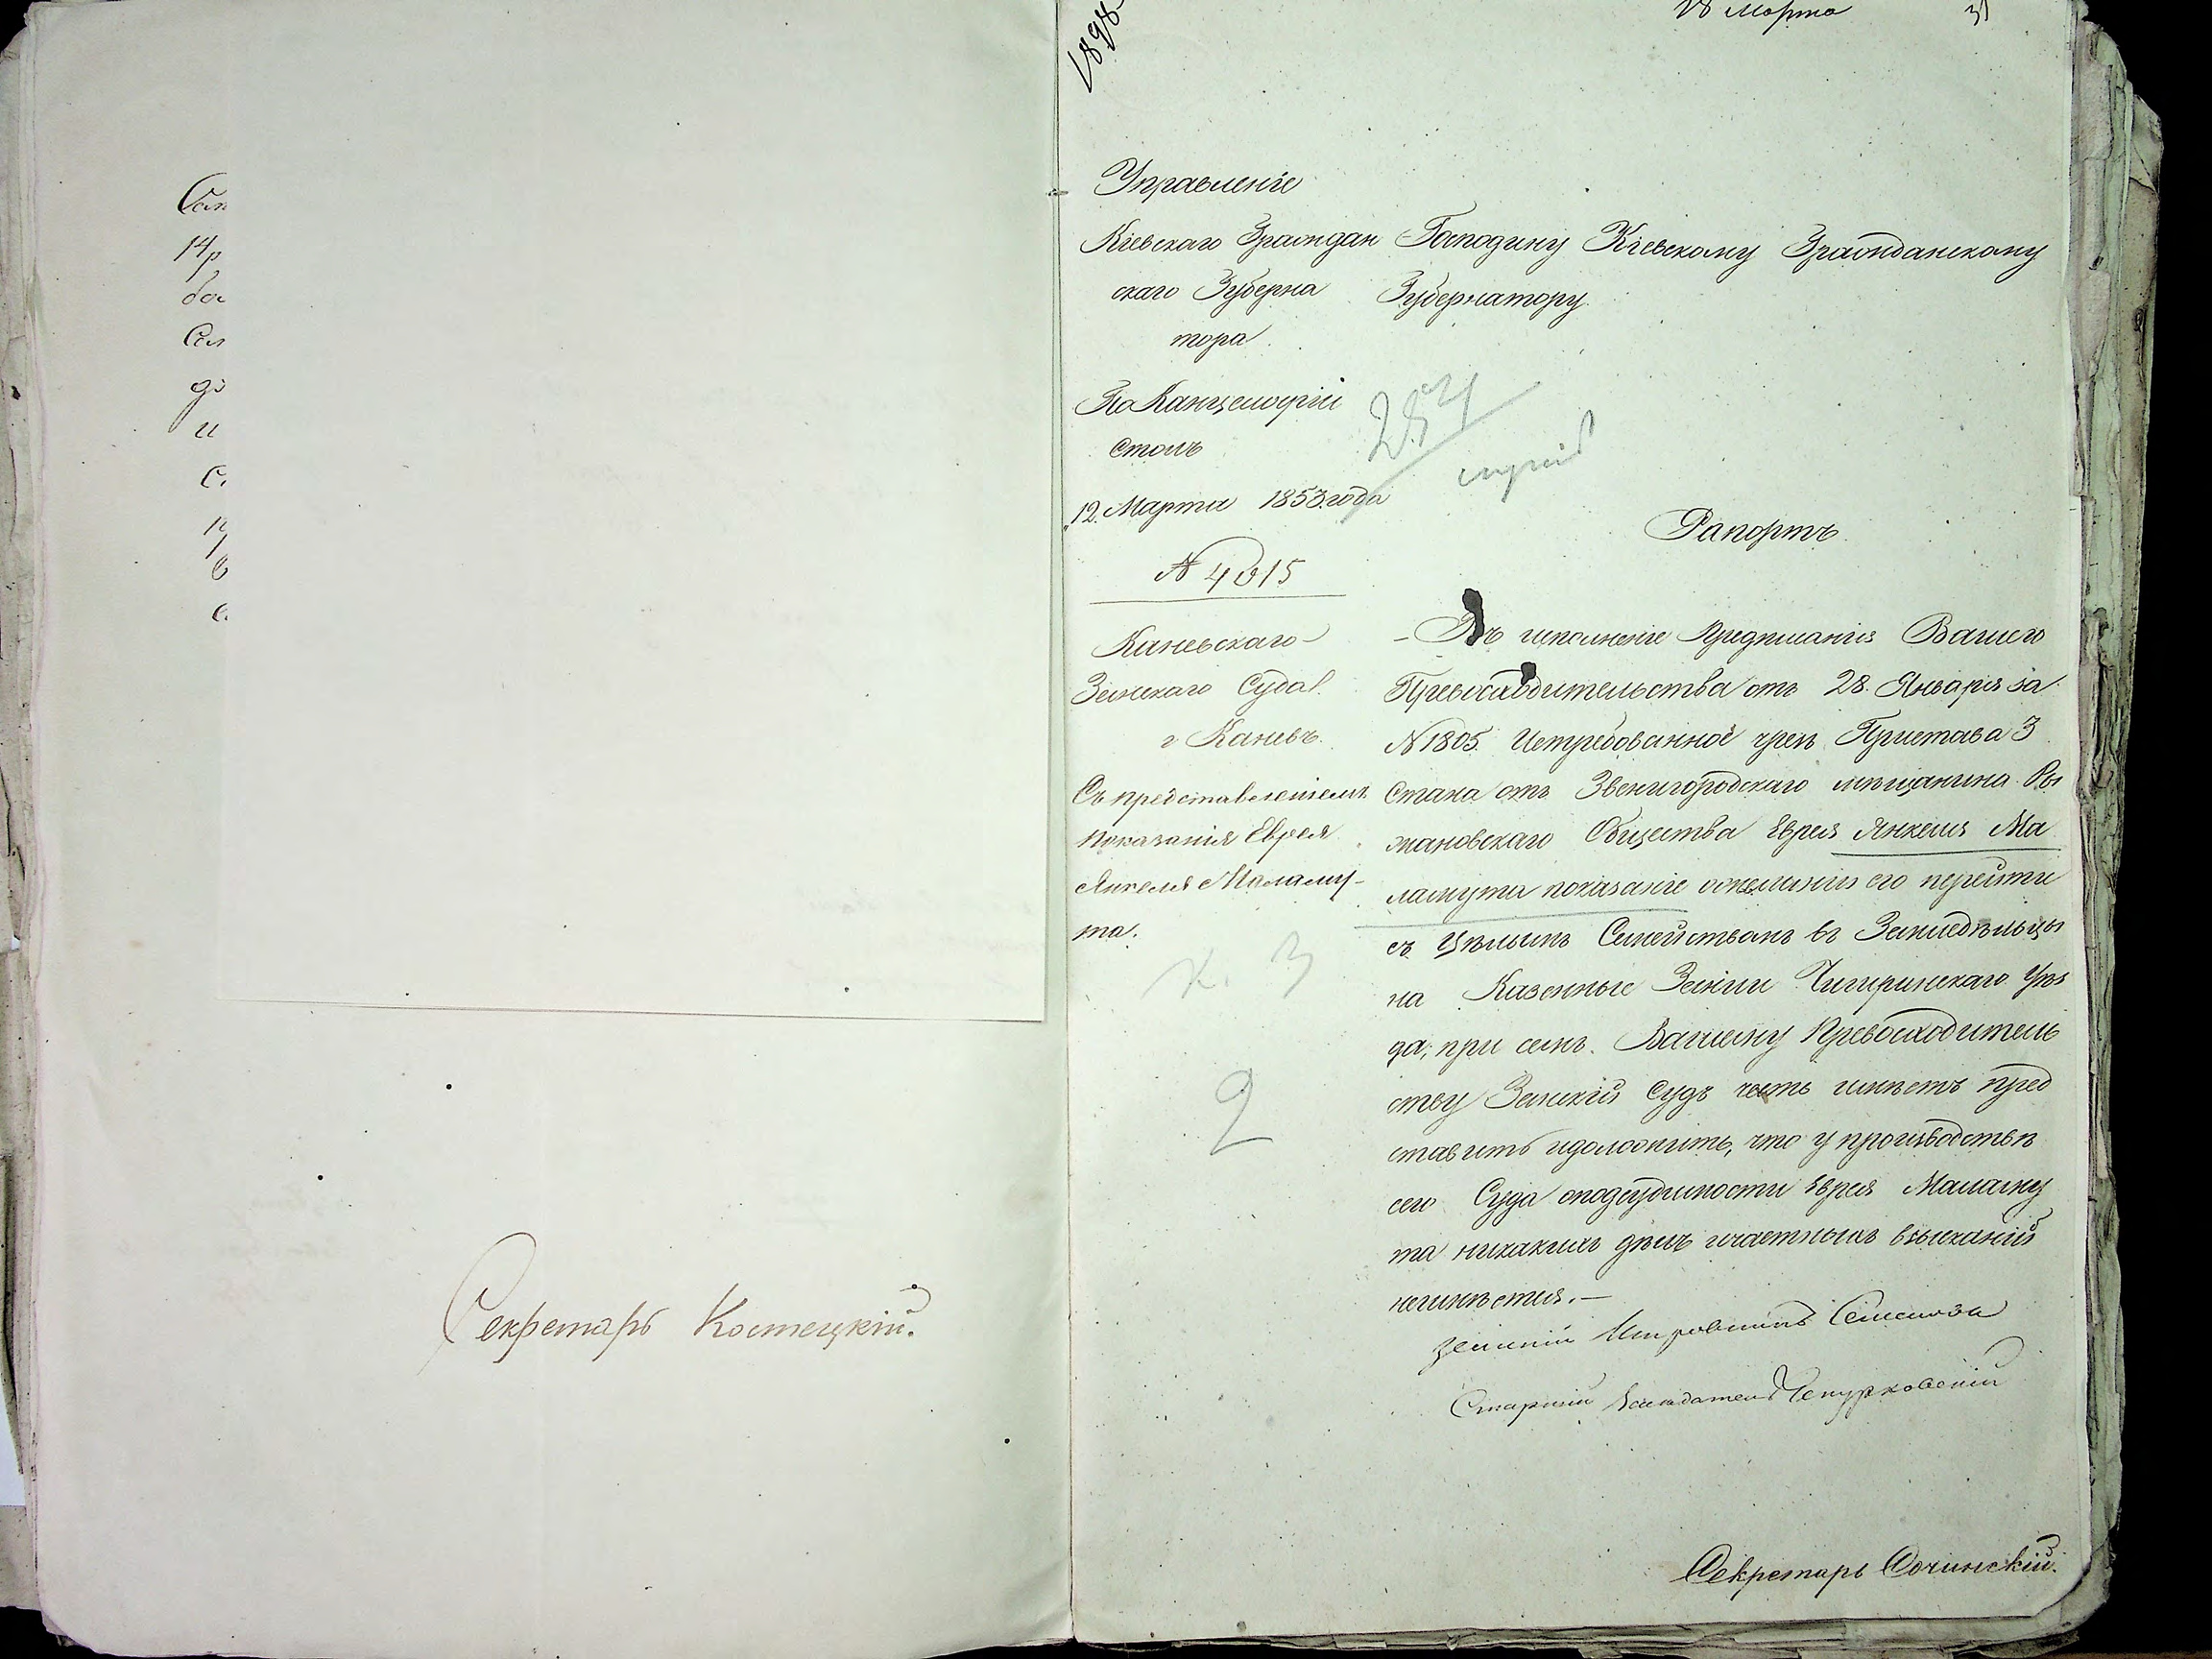 Секретарь Костецкій.
1898
18 Марта
Управленіе
Кіевскаго Граждан
скаго Губерна
тора
По Канцеляріи
Столъ
12. Марта 1853 года
№ 4015
Каневскаго
Земскаго Суда.
г Каневъ.
Съ представленіемъ
показанія Еврея
Янкеля Маламу-
та.
к. 3
2
Господину Кіевскому Гражданскому
Губернатору
Рапортъ.
Въ исполненіе Предписанія Вашего
Превосходительства отъ 28. Января за
№ 1805. Истребованное чрезъ Пристава 3
Стана отъ Звенигородскаго мѣщанина Ры
жановскаго Общества Еврея Янкеля Ма
ламута показаніе ожеланіи его перейти
съ цѣлымъ Семействомъ въ Земледѣльцы
на Казенные Земли Чигиринскаго Уѣз
да, при семъ. Вашему Превосходитель
ству Земскій Судъ честь имѣетъ пред
ставить идоложить, что у производствѣ
сего Суда оподсудимости Еврея Маламу
та никакихъ дѣлъ ичастныхъ взысканій
неимѣется.—
Земскій Исправникъ
Старшій Засѣдатель Чепурковскій
Секретарь Сочинскій.